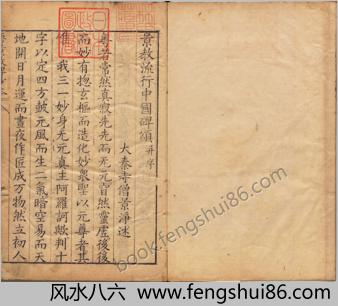 景教流行中國碑頌并序
大秦寺僧景淨述
粤若常然真寂先先而无元窅然靈虛後後
而妙有惣玄樞而造化妙衆聖以元尊者其
唯我三一妙身无元真主阿羅訶歟判十
字以定四方鼓元風而生二氣暗空易而天
地開日月運而晝夜作匠成万物然立初人
book.fengshui86.com
风水八六 www.fengshui86.com